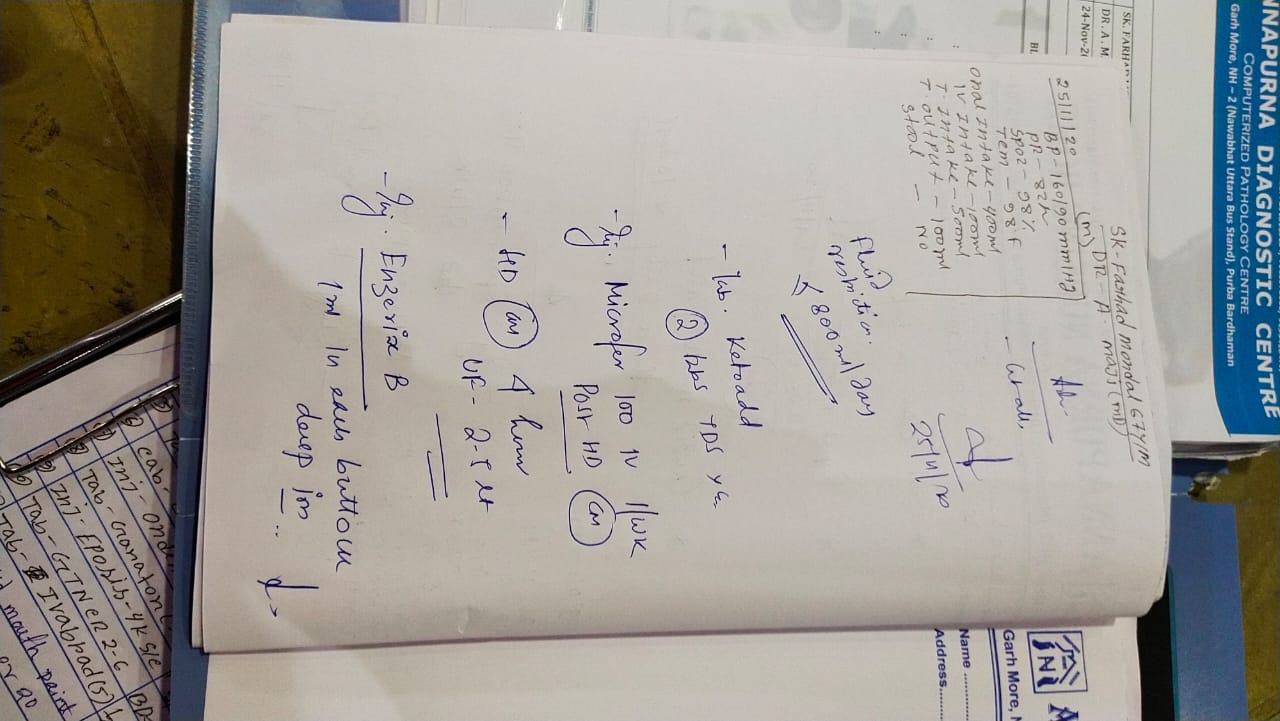 NNAPURNA DIAGNOSTIC CENTRE
COMPUTERIZED PATHOLOGY CENTRE
Garh More, NH - 2 (Nawabhat Uttara Bus Stand), Purba Bardhaman
SK. FARHA
DR. A. M.
24-Nov-2
SK-Farhad mondal 67Y/M
(m) DR - A. maji (MD)
25/11/20
BP - 160/90 mmHg
PR - 82/m
SPO2 - 98%
Tem - 98°F
oral intake - 400ml
IV Intake - 100ml
T Intake - 500ml
T output - 100ml
Stool - NO
25/11/20
Fluid
restriction.
< 800 ml/day
- Tab. Ketoadd
② tabs TDS
- Inj. Microfer 100 IV 1/WK
Post HD
- HD 4 hours
UF - 2.5 lt
- Inj. Engerix B
1ml in each buttock
deep im
Garh More, N
Name
Address
cab-
INJ-
Tab- Ganaton
INJ- EPOSIS-4K S/C
Tab- GTNCR 2.6
Tab- Ivabrad(5)
mouth paint